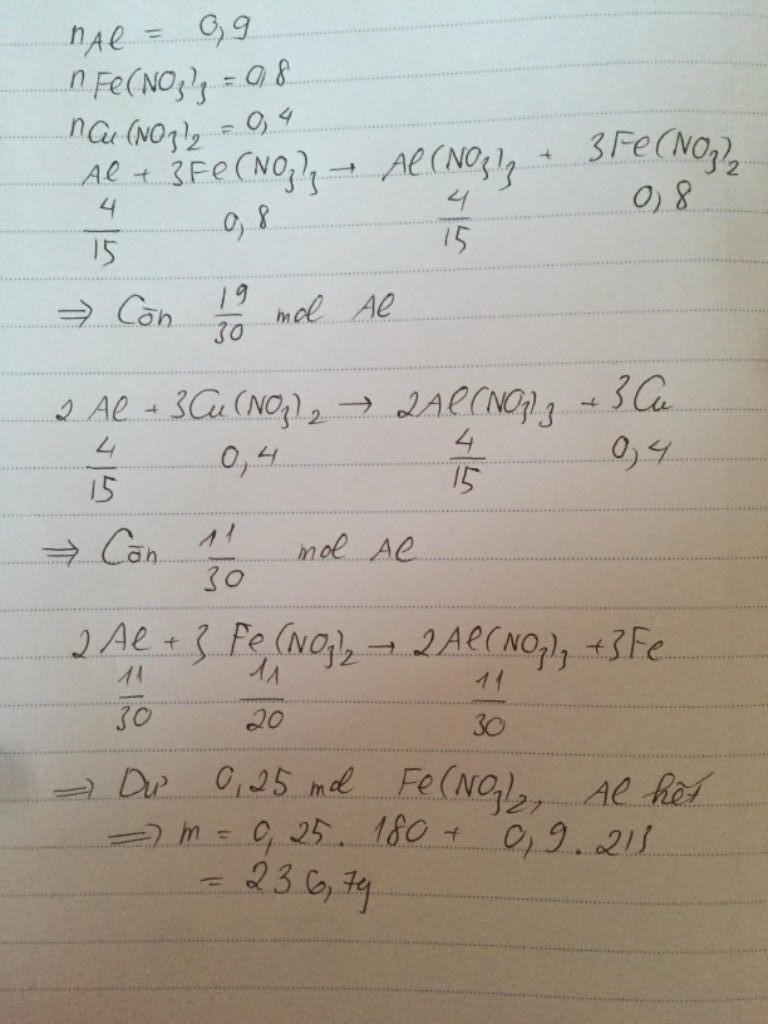 nAl = 0,9
nFe(NO3)3 = 0,8
nCu(NO3)2 = 0,4
Al + 3Fe(NO3)3 → Al(NO3)3 + 3Fe(NO3)2
4/15 0,8 4/15 0,8
⇒ Còn 19/30 mol Al
2Al + 3Cu(NO3)2 → 2Al(NO3)3 + 3Cu
4/15 0,4 4/15 0,4
⇒ Còn 11/30 mol Al
2Al + 3Fe(NO3)2 → 2Al(NO3)3 + 3Fe
11/30 11/20 11/30
⇒ Dư 0,25 mol Fe(NO3)2, Al hết
⇒ m = 0,25. 180 + 0,9. 213
= 236,7g